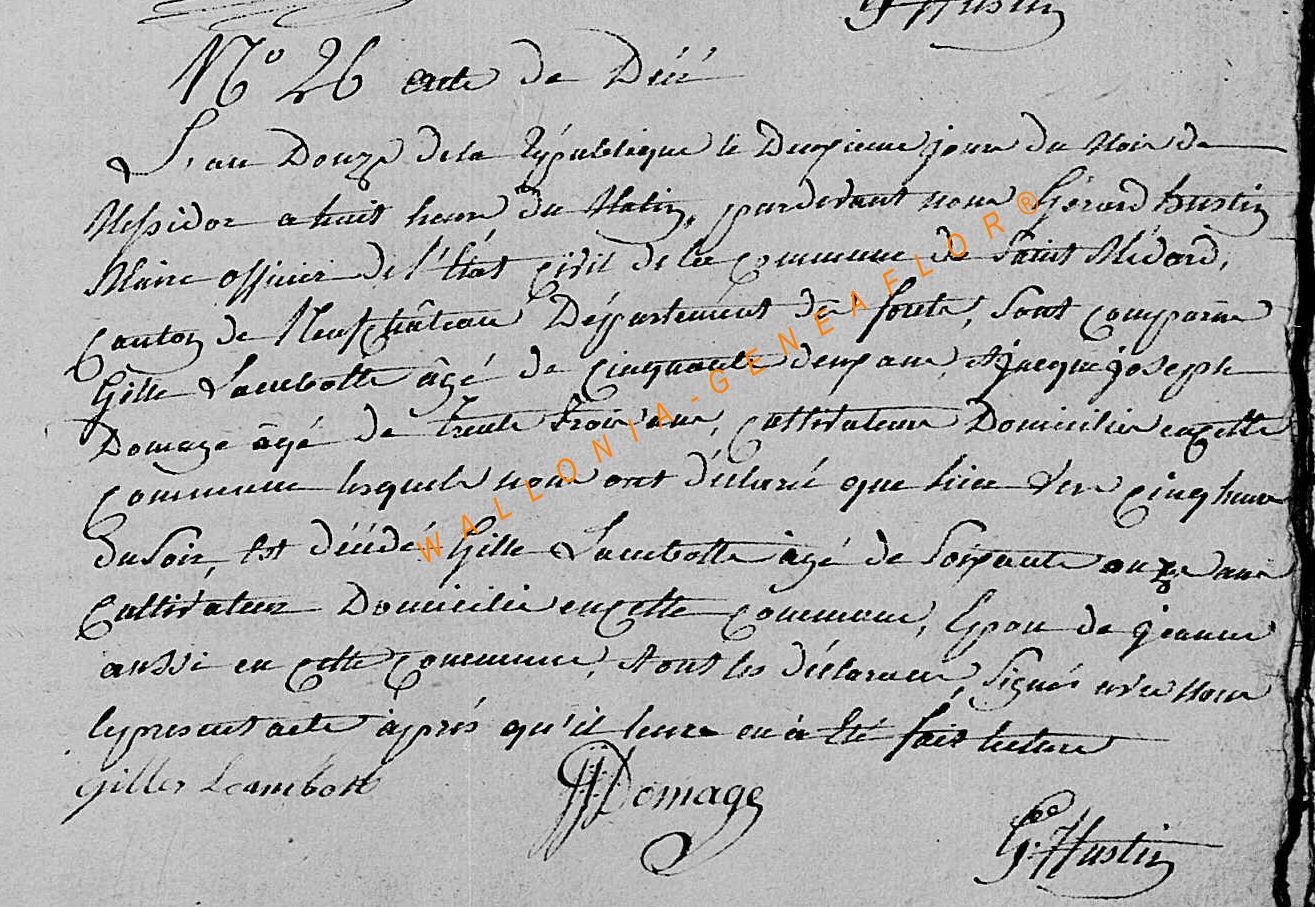 G. Hustin
N.o 26 acte de Décé
L'an Douze de la République le Deuxieme jour du Mois de
Messidor a huit heure du Matin, pardevant nous Gérard hustin
Maire officier de l'état civil de la commune de Saint Médard,
Canton de Neufchâteau Département de forêts, sont comparus
Gille Lambotte âgé de Cinquante deux ans, & jacque joseph
Domage âgé de trente trois ans, Cultivateurs Domicilié en cette
commune lesquels nous ont déclaré que hier vers cinq heure
du Soir, Est décédé Gille Lambotte âgé de Soixante onze ans
Cultivateur Domicilié en cette commune, Epou de jeanne
aussi en cette commune, & ont les déclarans, Signés avec nous
le present acte après qu'il leure en à Eté fait lecture
Gilles Lambott
JJ: Domage
G: Hustin
WALLONIA-GENEAFLOR®